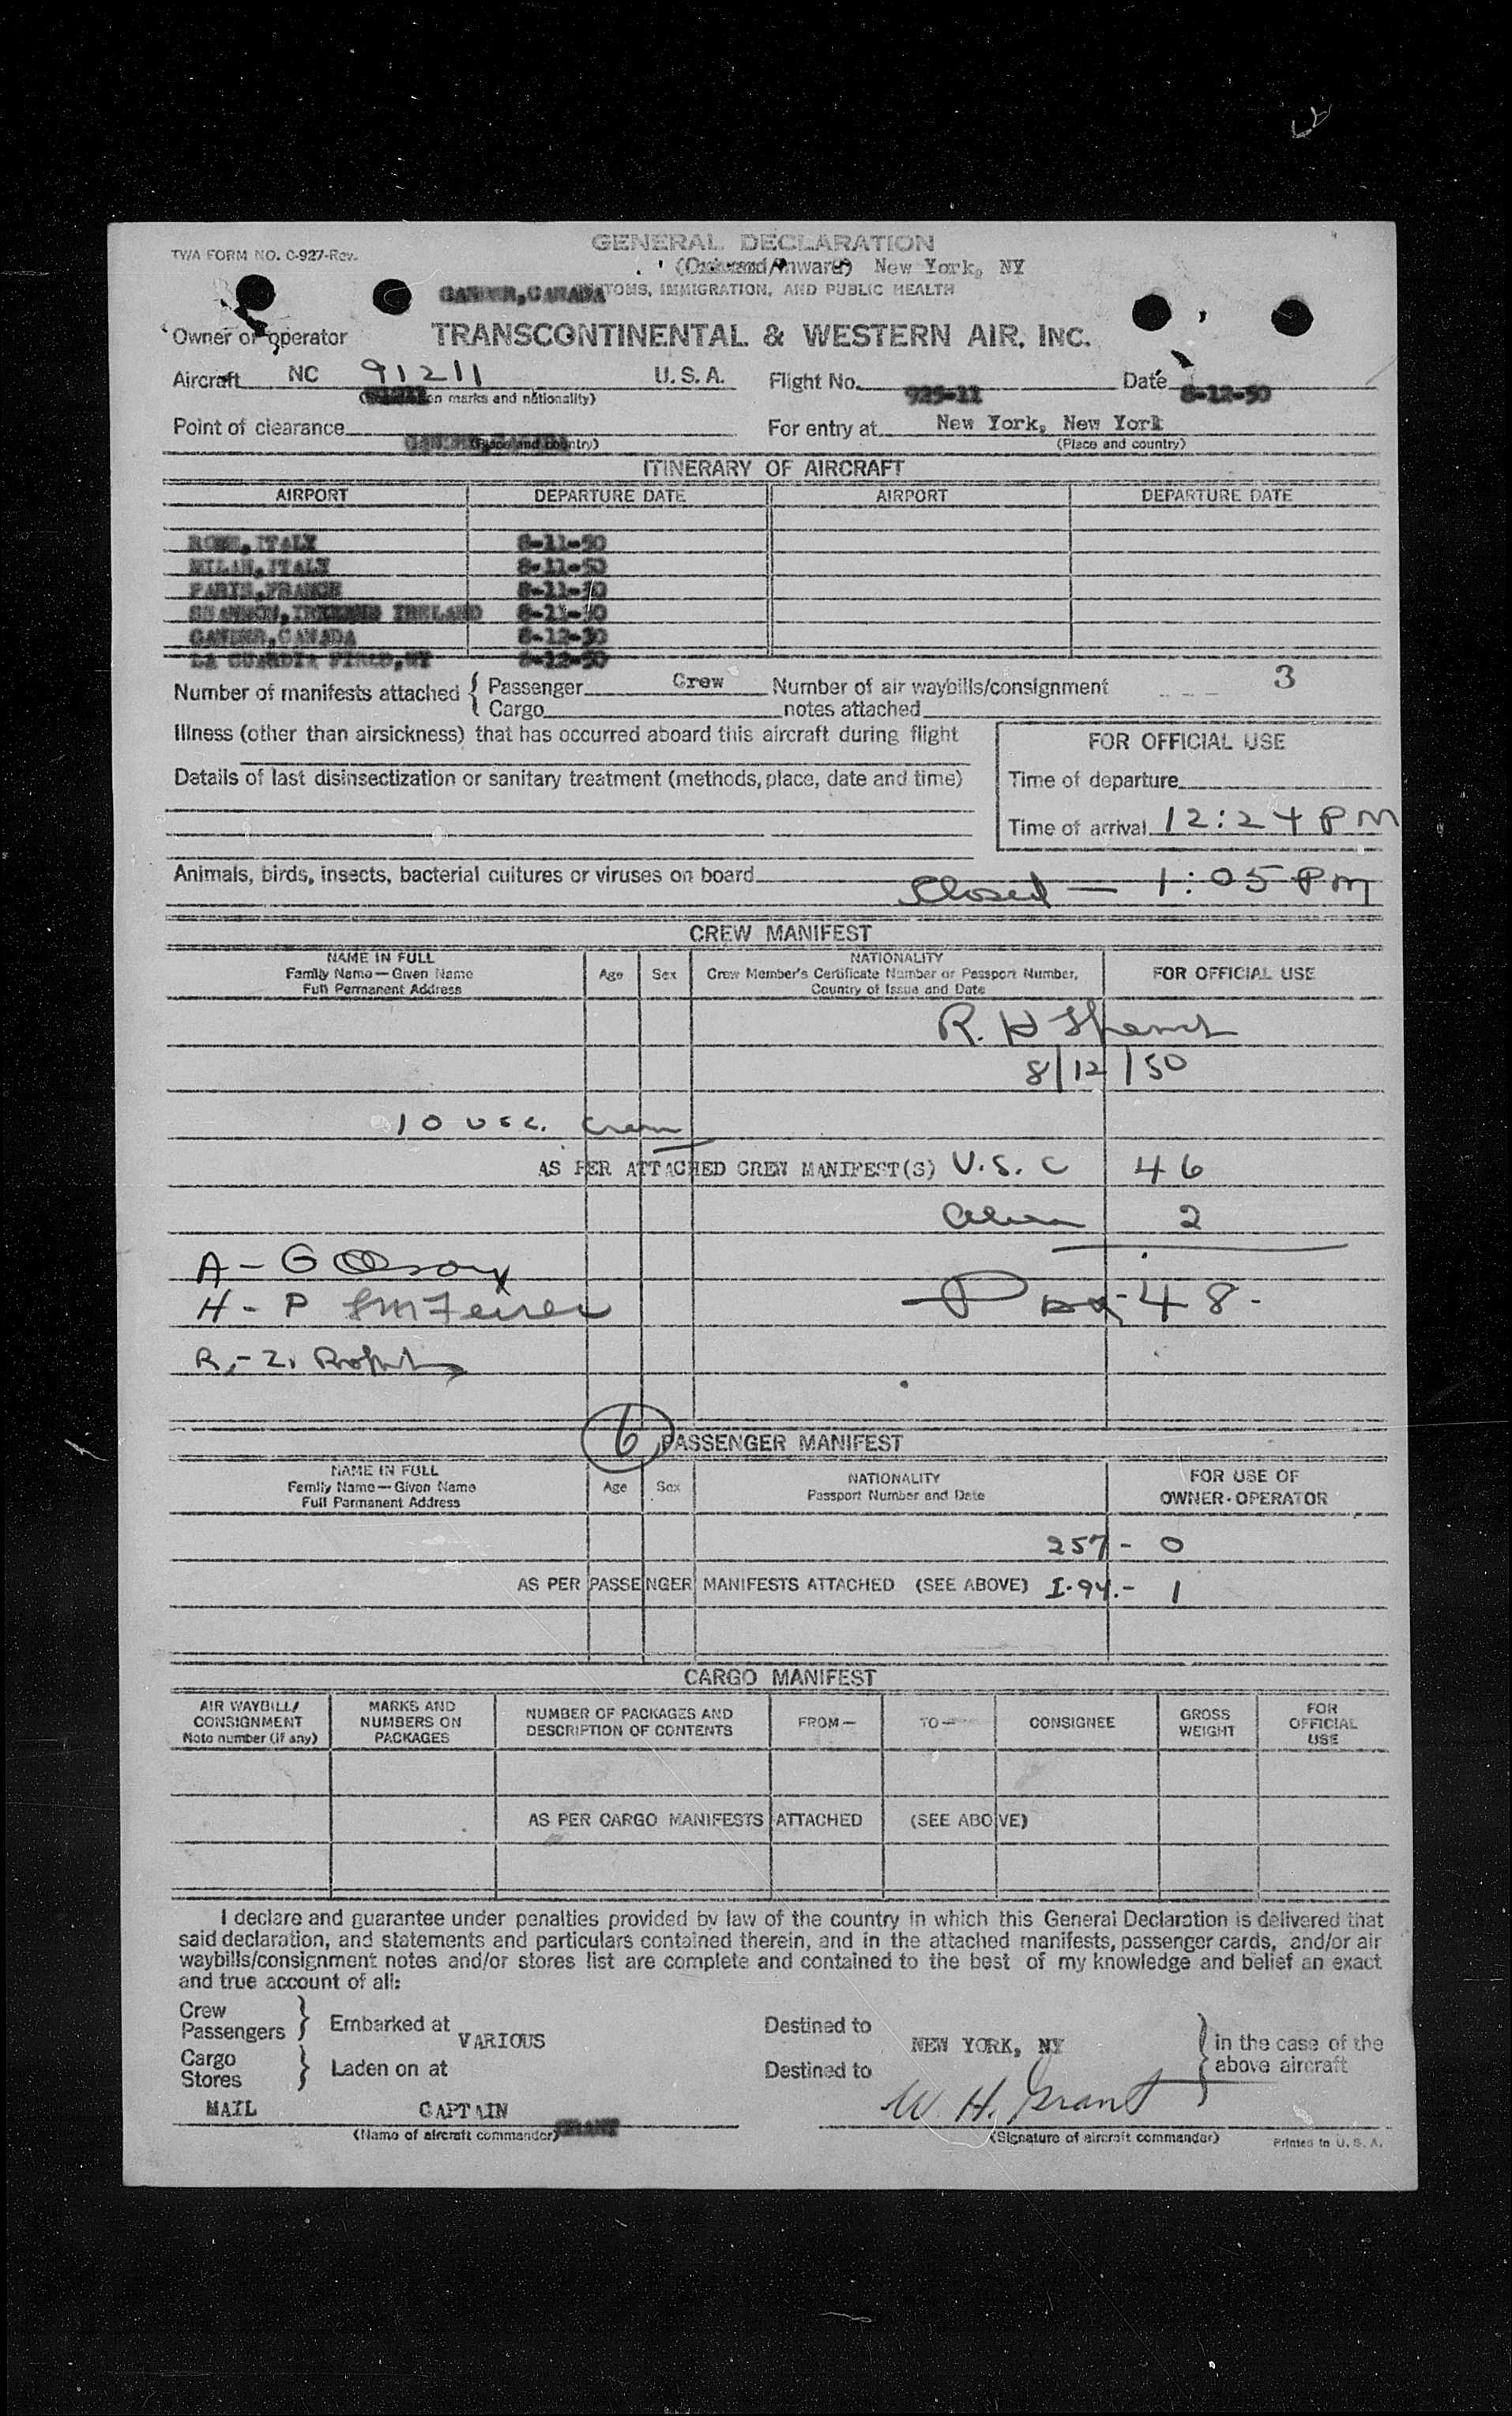 GENERAL DECLARATION
TWA FORM NO. C-927-Rev.
(Outward/Inward) New York, NY
GANDER, CANADA TOMS, IMMIGRATION, AND PUBLIC HEALTH
Owner or operator TRANSCONTINENTAL & WESTERN AIR, INC.
Aircraft NC 91211 U.S.A. Flight No. 925-11 Date 8-12-50
on marks and nationality)
Point of clearance GANDER, CANADA For entry at New York, New York
(Place and country) (Place and country)
ITINERARY OF AIRCRAFT
AIRPORT DEPARTURE DATE AIRPORT DEPARTURE DATE
ROME, ITALY 8-11-50
MILAN, ITALY 8-11-50
PARIS, FRANCE 8-11-50
SHANNON, IRELAND 8-11-50
GANDER, CANADA 8-12-50
LA GUARDIA FIELD, NY 8-12-50
Number of manifests attached { Passenger Crew Number of air waybills/consignment --- 3
Cargo notes attached
Illness (other than airsickness) that has occurred aboard this aircraft during flight
FOR OFFICIAL USE
Details of last disinsectization or sanitary treatment (methods, place, date and time)
Time of departure
Time of arrival 12:24 PM
Animals, birds, insects, bacterial cultures or viruses on board
Closed — 1:05 PM
CREW MANIFEST
NAME IN FULL
Family Name—Given Name
Full Permanent Address
Age Sex
NATIONALITY
Crew Member's Certificate Number or Passport Number,
Country of Issue and Date
FOR OFFICIAL USE
R. H
8/12/50
10 USC. Crew
AS PER ATTACHED CREW MANIFEST(S) U.S.C 46
Alien 2
A - G Olson
H - P
Pax - 48 -
R - Z.
6
PASSENGER MANIFEST
NAME IN FULL
Family Name—Given Name
Full Permanent Address
Age Sex
NATIONALITY
Passport Number and Date
FOR USE OF
OWNER-OPERATOR
257 - 0
AS PER PASSENGER MANIFESTS ATTACHED (SEE ABOVE) I-94. - 1
CARGO MANIFEST
AIR WAYBILL/
CONSIGNMENT
Note number (if any)
MARKS AND
NUMBERS ON
PACKAGES
NUMBER OF PACKAGES AND
DESCRIPTION OF CONTENTS
FROM—
TO—
CONSIGNEE
GROSS
WEIGHT
FOR
OFFICIAL
USE
AS PER CARGO MANIFESTS ATTACHED (SEE ABOVE)
I declare and guarantee under penalties provided by law of the country in which this General Declaration is delivered that
said declaration, and statements and particulars contained therein, and in the attached manifests, passenger cards, and/or air
waybills/consignment notes and/or stores list are complete and contained to the best of my knowledge and belief an exact
and true account of all:
Crew
Passengers } Embarked at VARIOUS Destined to NEW YORK, NY
Cargo
Stores } Laden on at Destined to
} in the case of the
above aircraft
MAIL CAPTAIN GRANT W. H. Grant
(Name of aircraft commander) (Signature of aircraft commander) Printed in U. S. A.